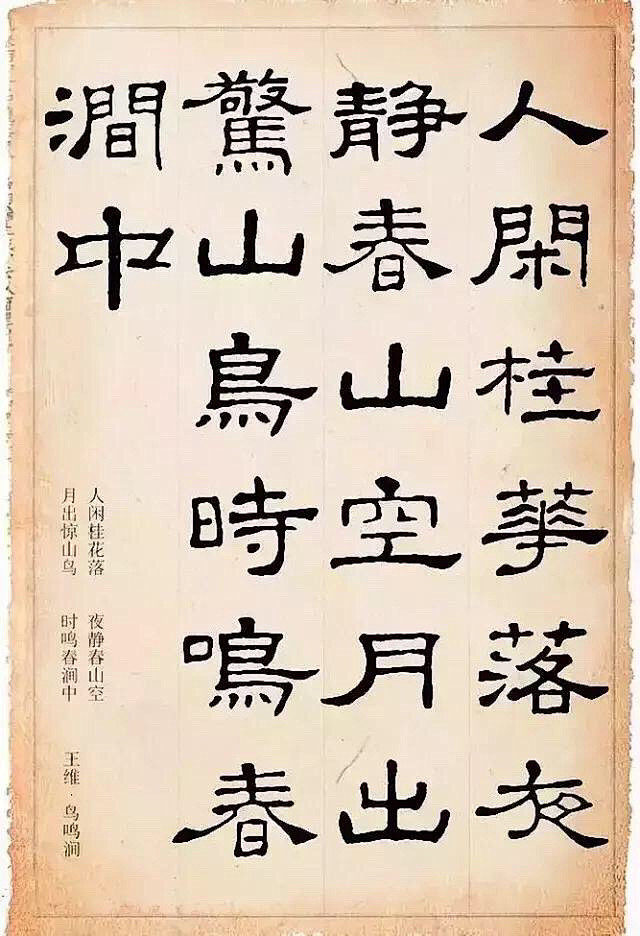 人閑桂華落夜
静春山空月出
驚山鳥時鳴春
澗中
人闲桂花落 夜静春山空
月出惊山鸟 时鸣春涧中 王维·鸟鸣涧